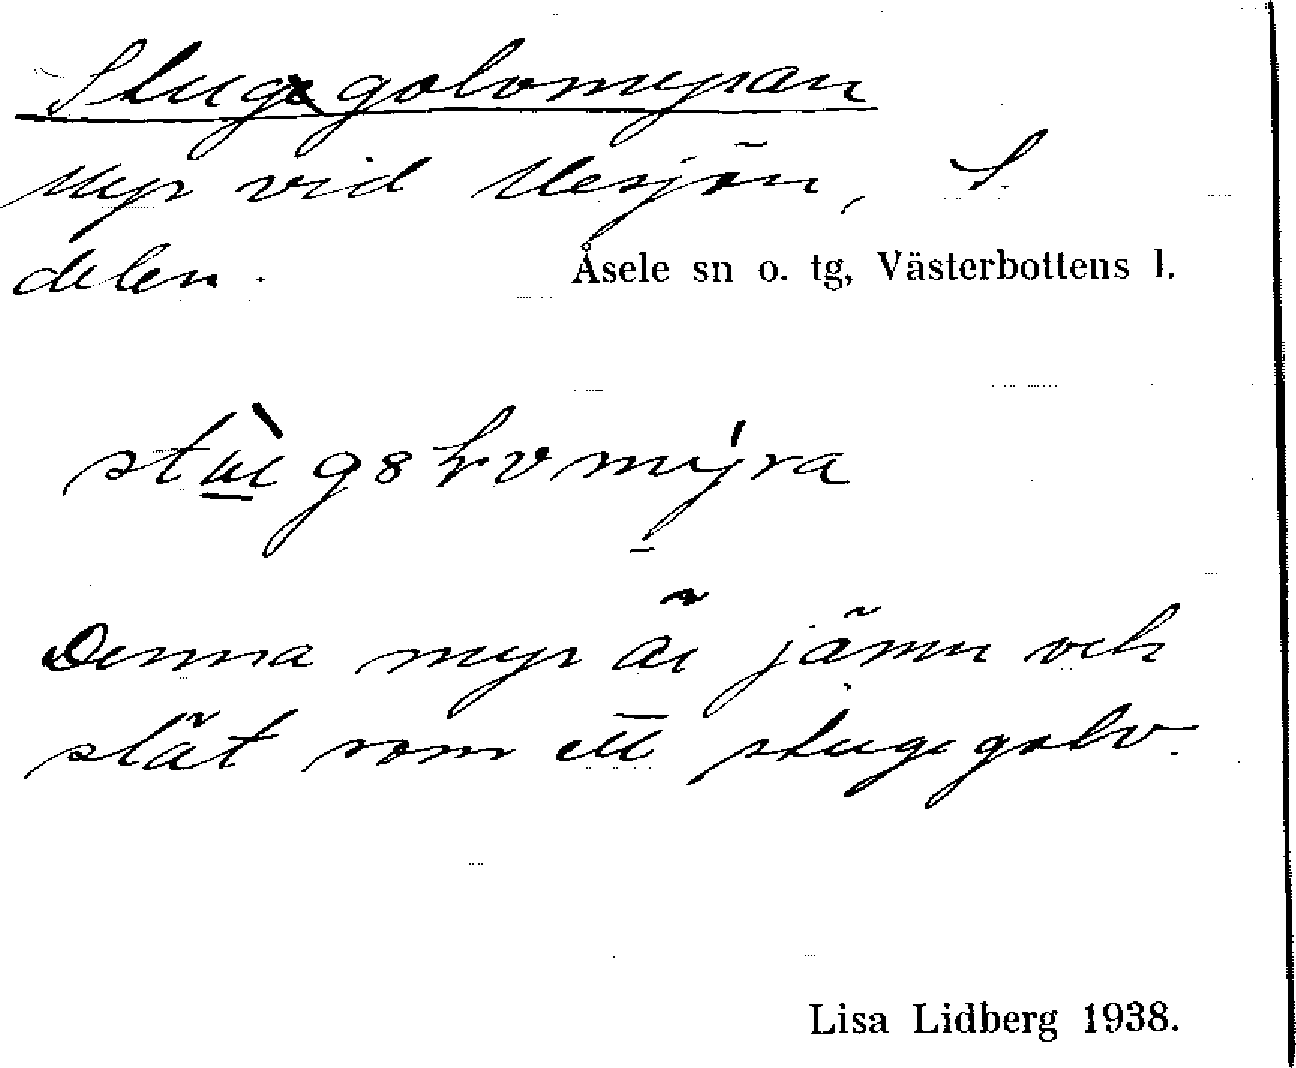 Stugugolvmyran
Myr vid Mesjön, S.
delen.
Åsele sn o. tg, Västerbottens l.
Denna myr är jämn och
slät som ett stugugolv.
Lisa Lidberg 1938.